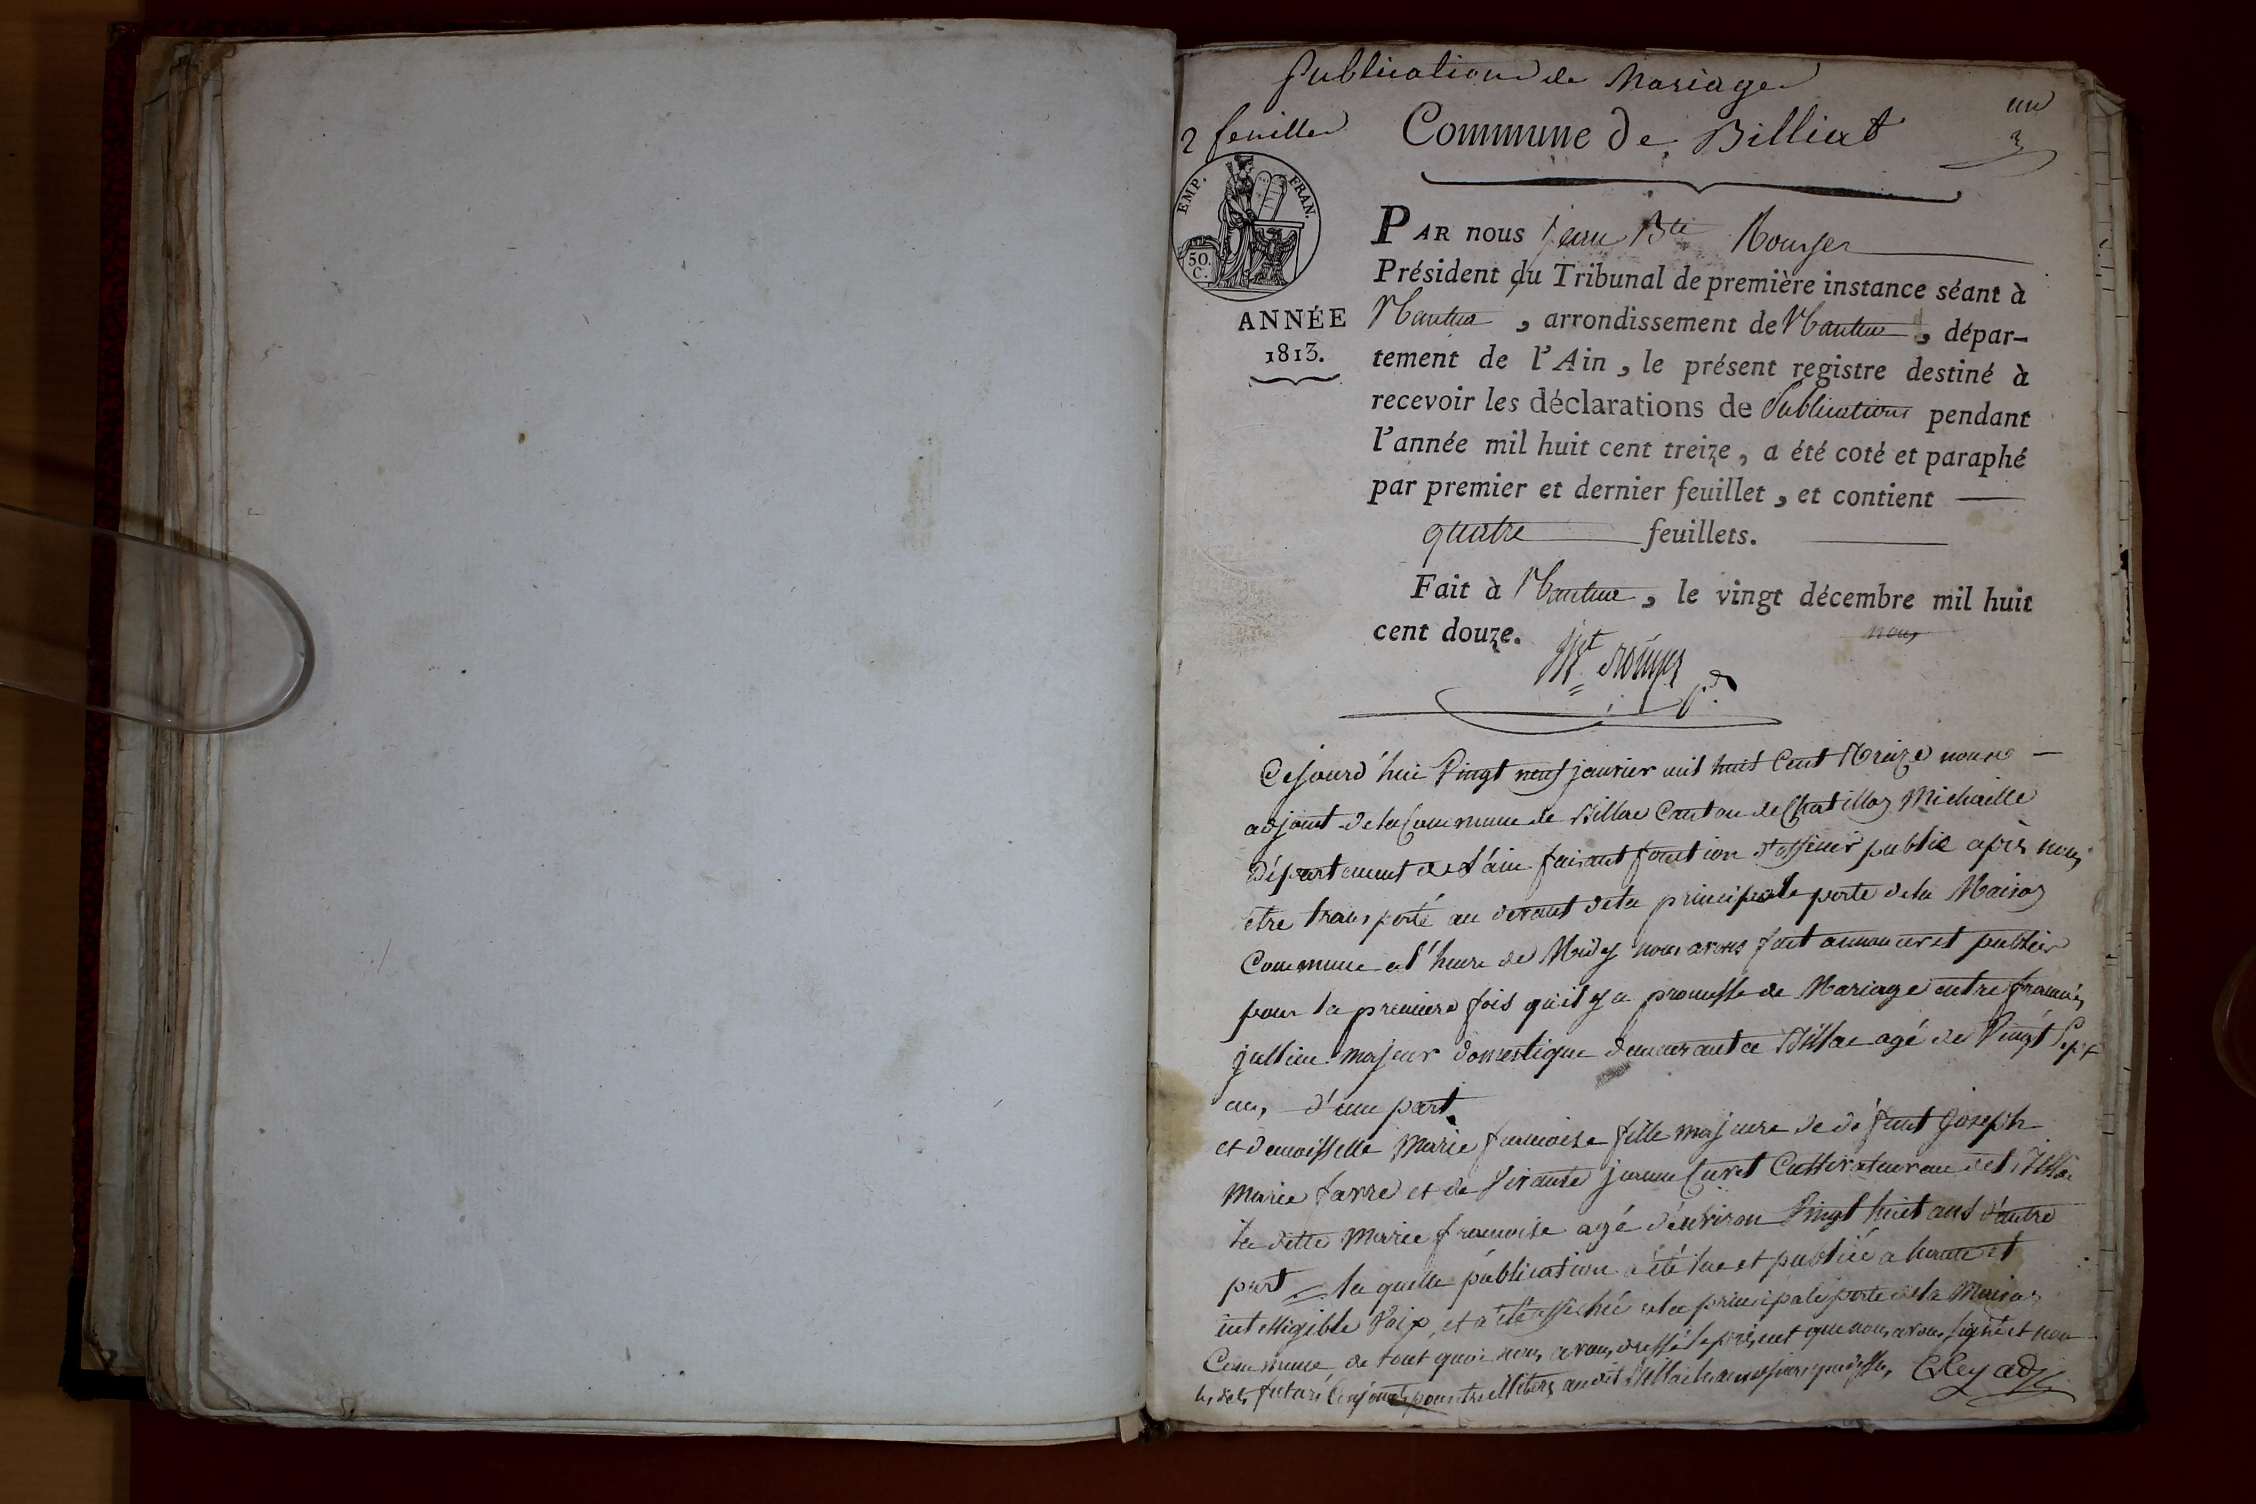 Publication de Mariage
un
2 feuilles
Commune de Billiat
EMP. FRAN.
50. C.
PAR nous jean Bte Rouyer
Président du Tribunal de première instance séant à
ANNÉE
Nantua, arrondissement de Nantua, dépar-
1813.
tement de l'Ain, le présent registre destiné à
recevoir les déclarations de Publications pendant
l'année mil huit cent treize, a été coté et paraphé
par premier et dernier feuillet, et contient
quatre feuillets.
Fait à Nantua, le vingt décembre mil huit
cent douze.
nous
Cejourd'hui Vingt neuf janvier mil huit Cent Treize nous
adjoint de la Commune de Billiac Canton de Chatillon Michaille
Département de L'ain faisant fonction d'officier public après nous
etre transporté au devant de la principale porte de la Maison
Commune a l'heure de Midy nous avons fait annoncer et publier
pour la premiere fois qu'il y a promesse de Mariage entre francois
jullien majeur domestique demeurant a Billiac agé de Vingt Sept
ans, d'une part
et demoisselle Marie francoise fille majeure de défunt joseph
Marie favre et de Vivante jeanne Curet Cultivateur au dit Billiac
la ditte Marie francoise agé d'environ Vingt huit ans d'autre
part la quelle publication a été lue et publiée a haute et
intelligible Voix, et a été affiché a la principale porte de la Maison
Commune de tout quoi nous avons dressé le présent que nous avons signé et non
les dits futurs Conjoints pour être illiterés au dit Billiac les an et jour que dessus, Rey adj